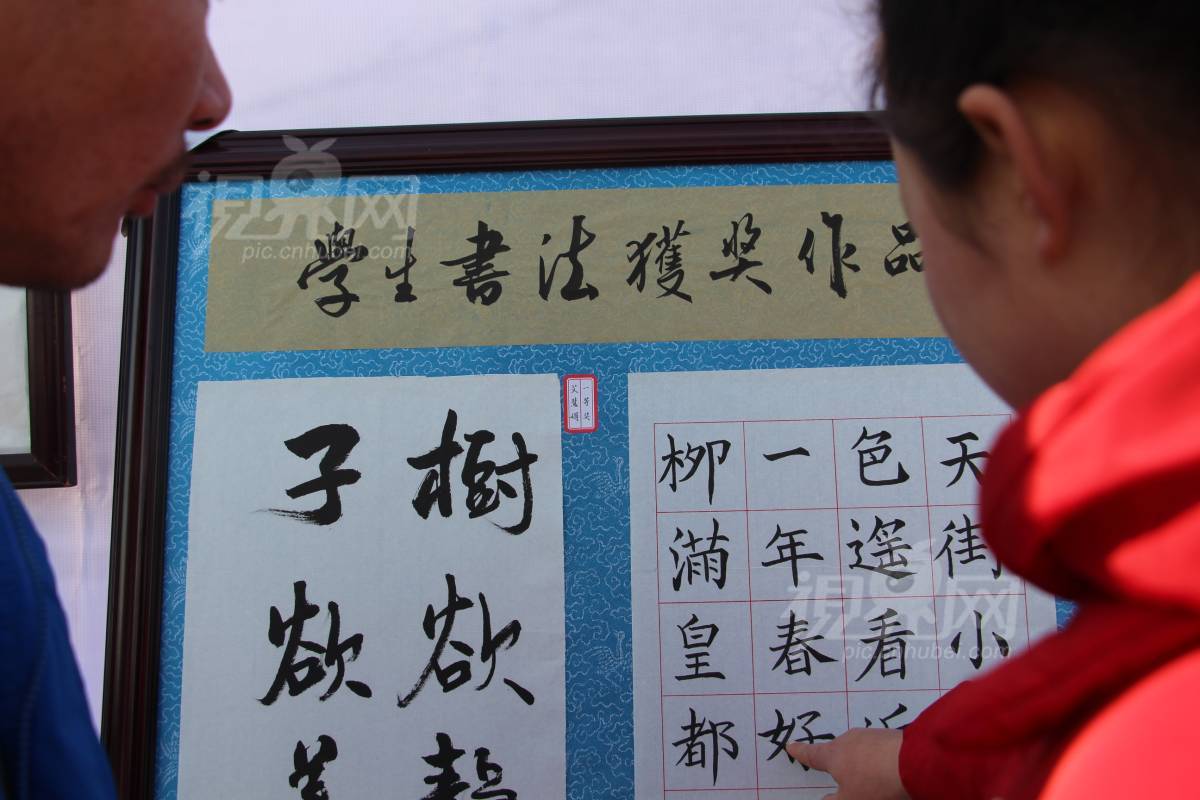 视界网
pic.cnhubei.com
學生書法獲奖作品
一等奖
樹欲
子欲
天街小
色遥看近
一年春好
柳满皇都
视界网
pic.cnhubei.com